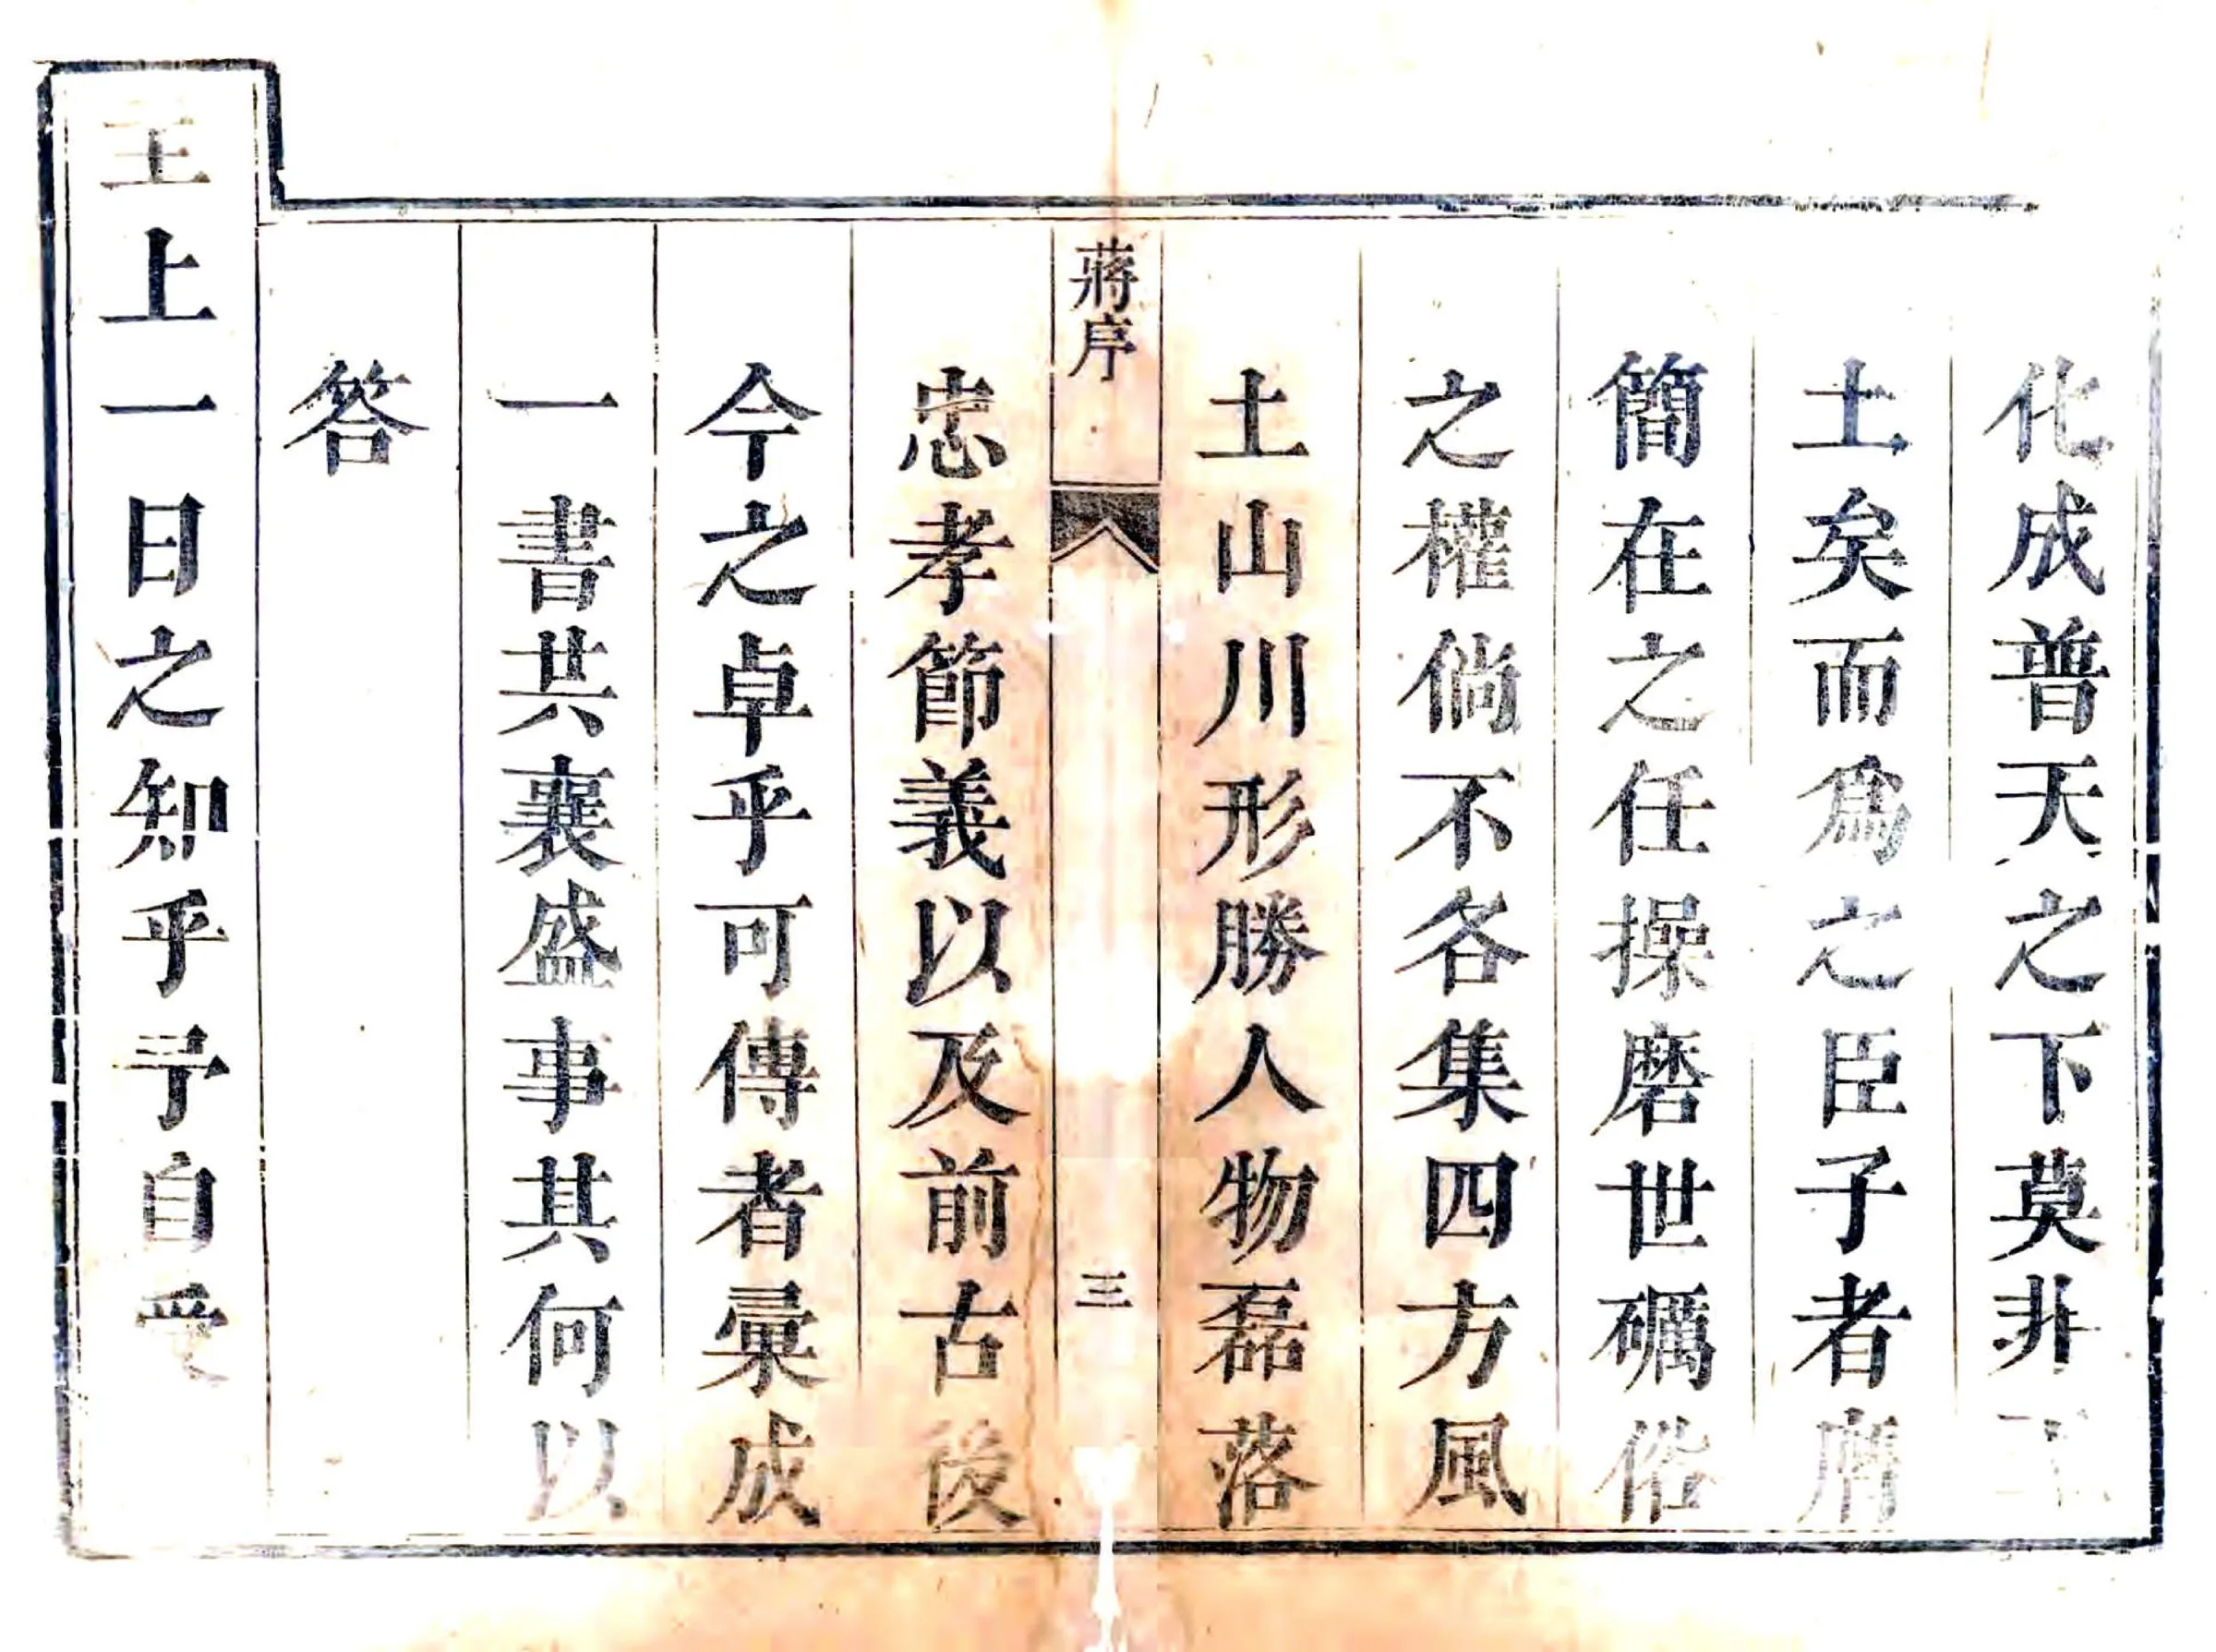 化成普天之下莫非王
土矣而爲之臣子者膺
簡在之任操磨世礪俗
之權倘不各集四方風
土山川形勝人物磊落
蔣序
三
忠孝節義以及前古後
今之卓乎可傳者彙成
一書共襄盛事其何以
答
主上一日之知乎予自受